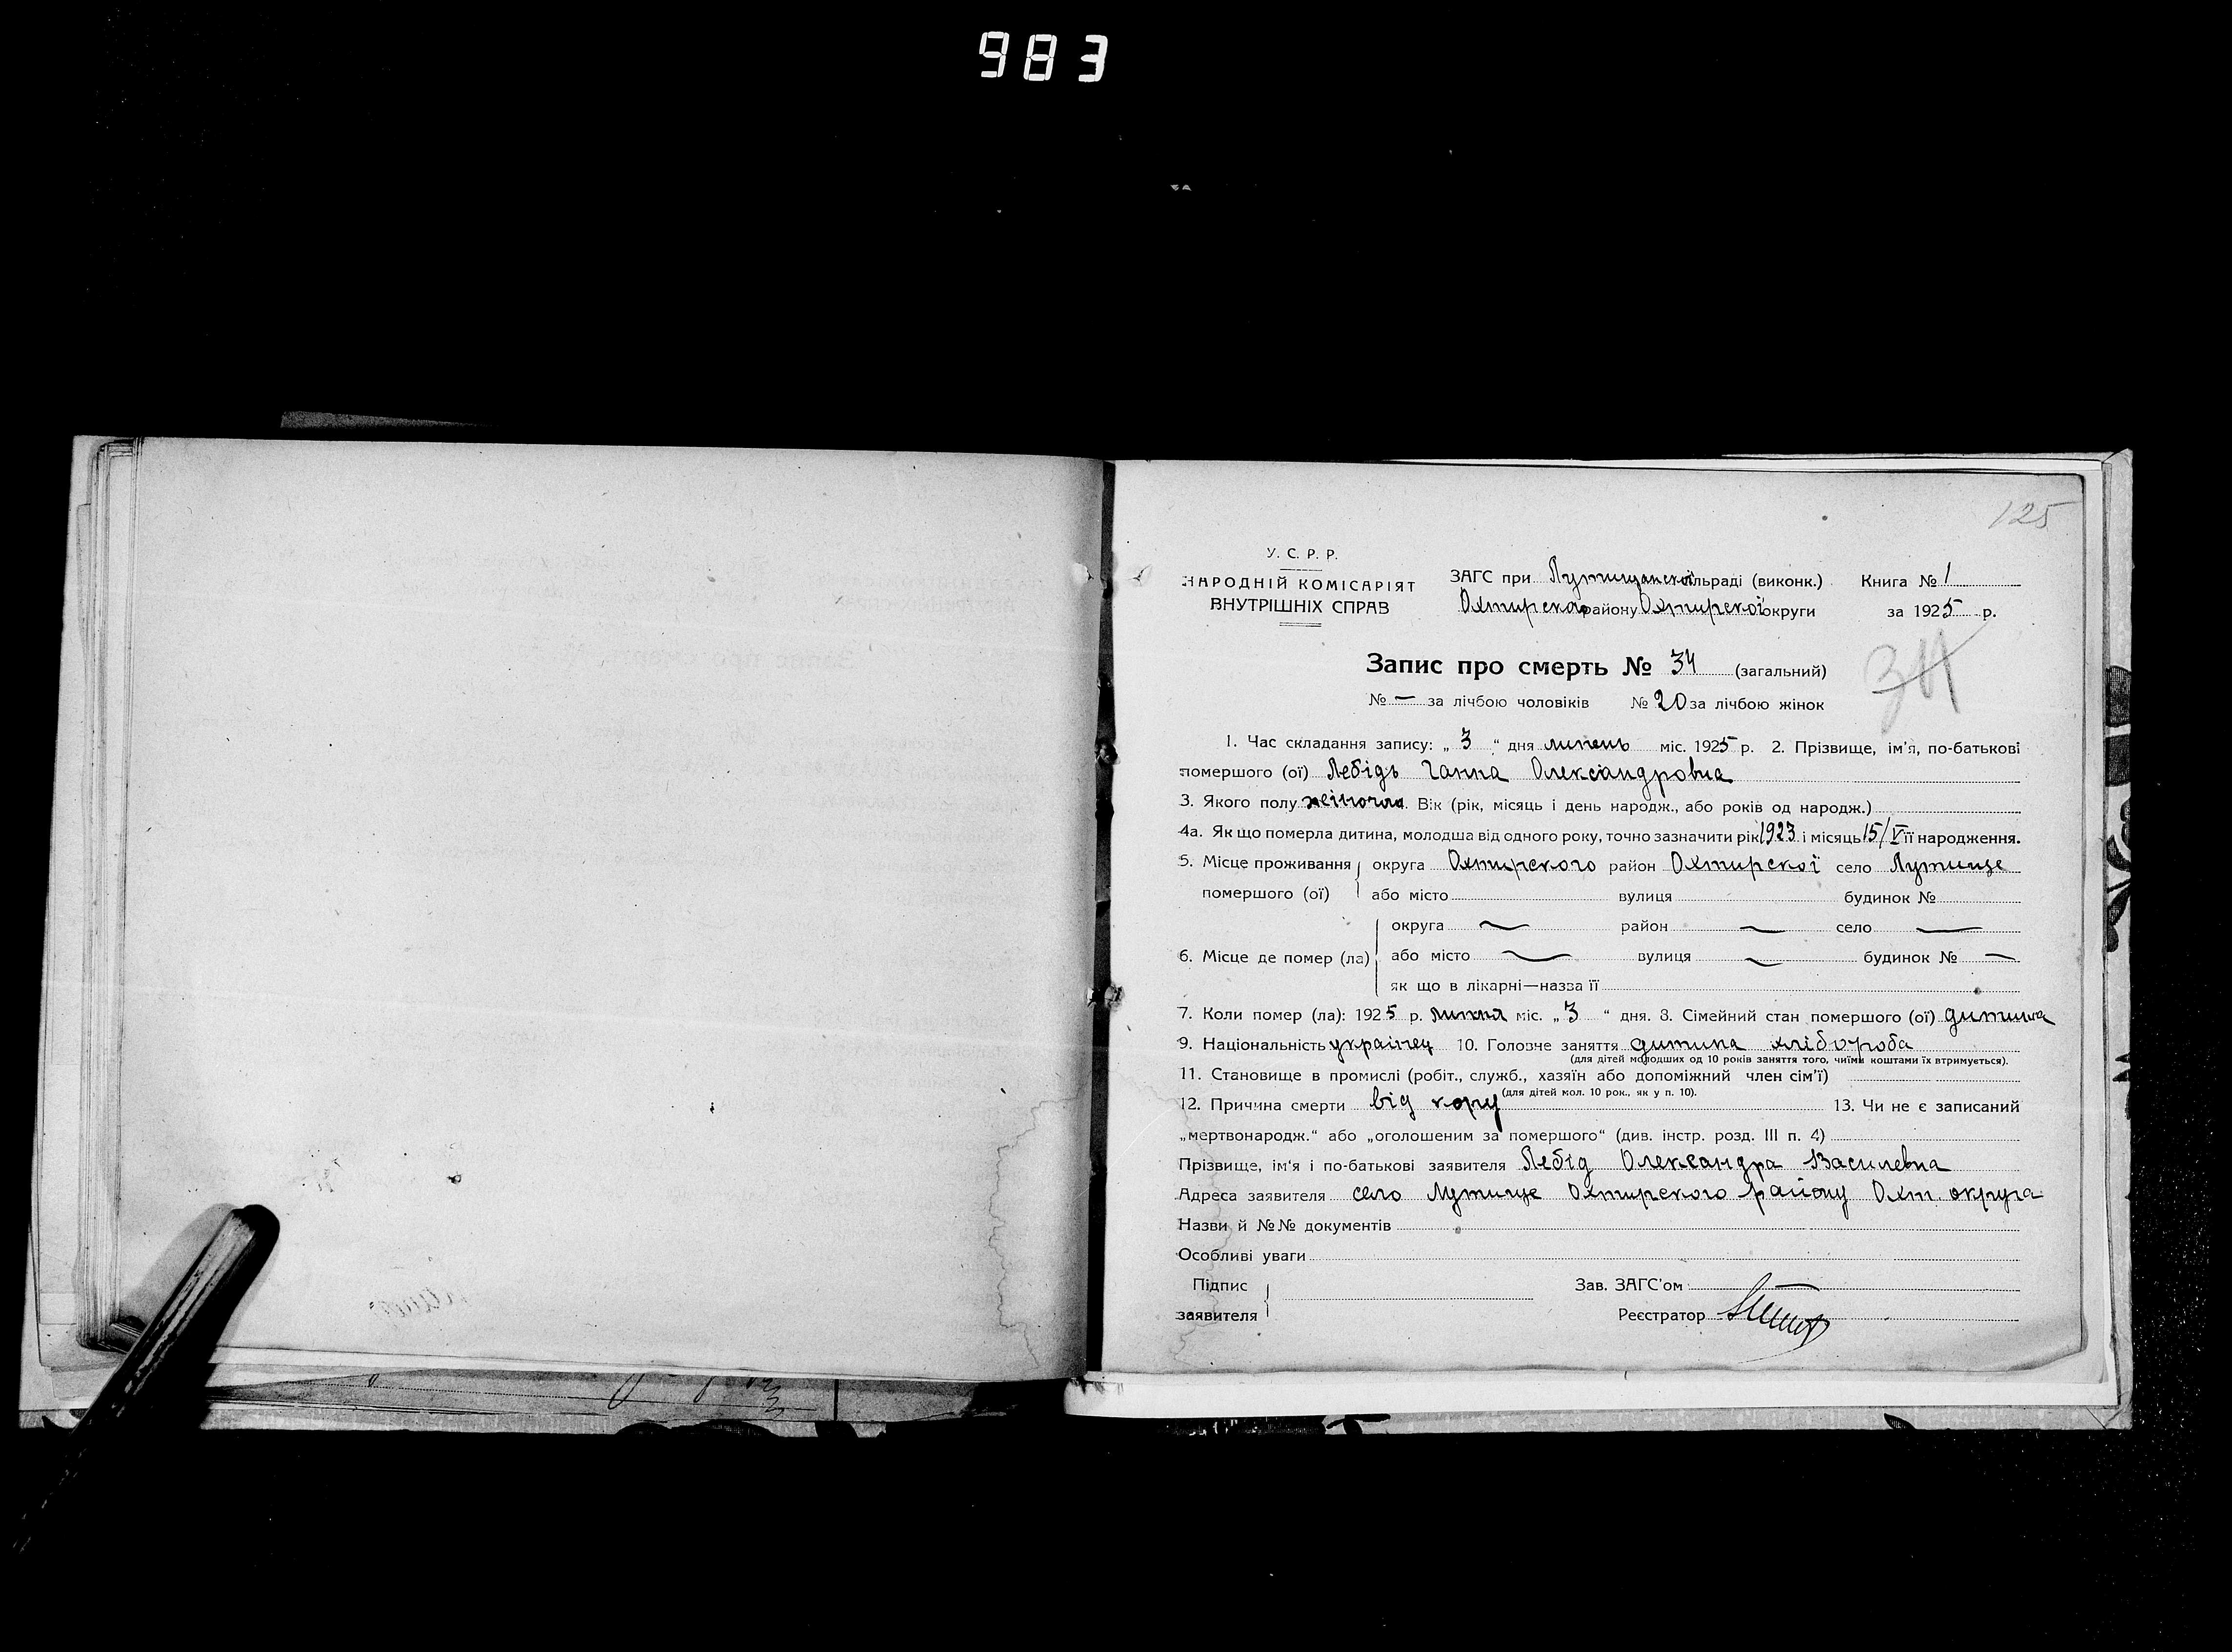 983
125
У. С. Р. Р.
НАРОДНІЙ КОМІСАРІЯТ
ВНУТРІШНІХ СПРАВ
ЗАГС при Лутищанскої сільраді (виконк.) Книга № 1
Охтирского району Охтирскої округи за 1925 р.
Запис про смерть № 34 (загальний)
34
№ — за лічбою чоловіків № 20 за лічбою жінок
1. Час складання запису: „ 3 “ дня липень міс. 1925 р. 2. Прізвище, ім'я, по-батькові
помершого (ої) Лебідь Ганна Олександровна
3. Якого полу жіноча. Вік (рік, місяць і день народж., або років од народж.)
4а. Як що померла дитина, молодша від одного року, точно зазначити рік 1923 і місяць 15/V її народження.
5. Місце проживання округа Охтирского район Охтирскої село Лутище
помершого (ої) або місто вулиця будинок №
округа — район — село —
6. Місце де помер (ла) або місто — вулиця — будинок № —
як що в лікарні—назва її
7. Коли помер (ла): 1925 р. липня міс. „ 3 “ дня. 8. Сімейний стан помершого (ої) дитина
9. Національність українец 10. Головне заняття дитина хлібороба
(для дітей молодших од 10 років заняття того, чиїми коштами їх втримується).
11. Становище в промислі (робіт., служб., хазяїн або допоміжний член сім'ї)
(для дітей мол. 10 рок., як у п. 10).
12. Причина смерти від кору 13. Чи не є записаний
„мертвонародж.“ або „оголошеним за помершого“ (див. інстр. розд. III п. 4)
Прізвище, ім'я і по-батькові заявителя Лебід Олександра Василевна
Адреса заявителя село Лутище Охтирского району Охт. округа
Назви й №№ документів
Особливі уваги
Підпис Зав. ЗАГС'ом
заявителя Реєстратор